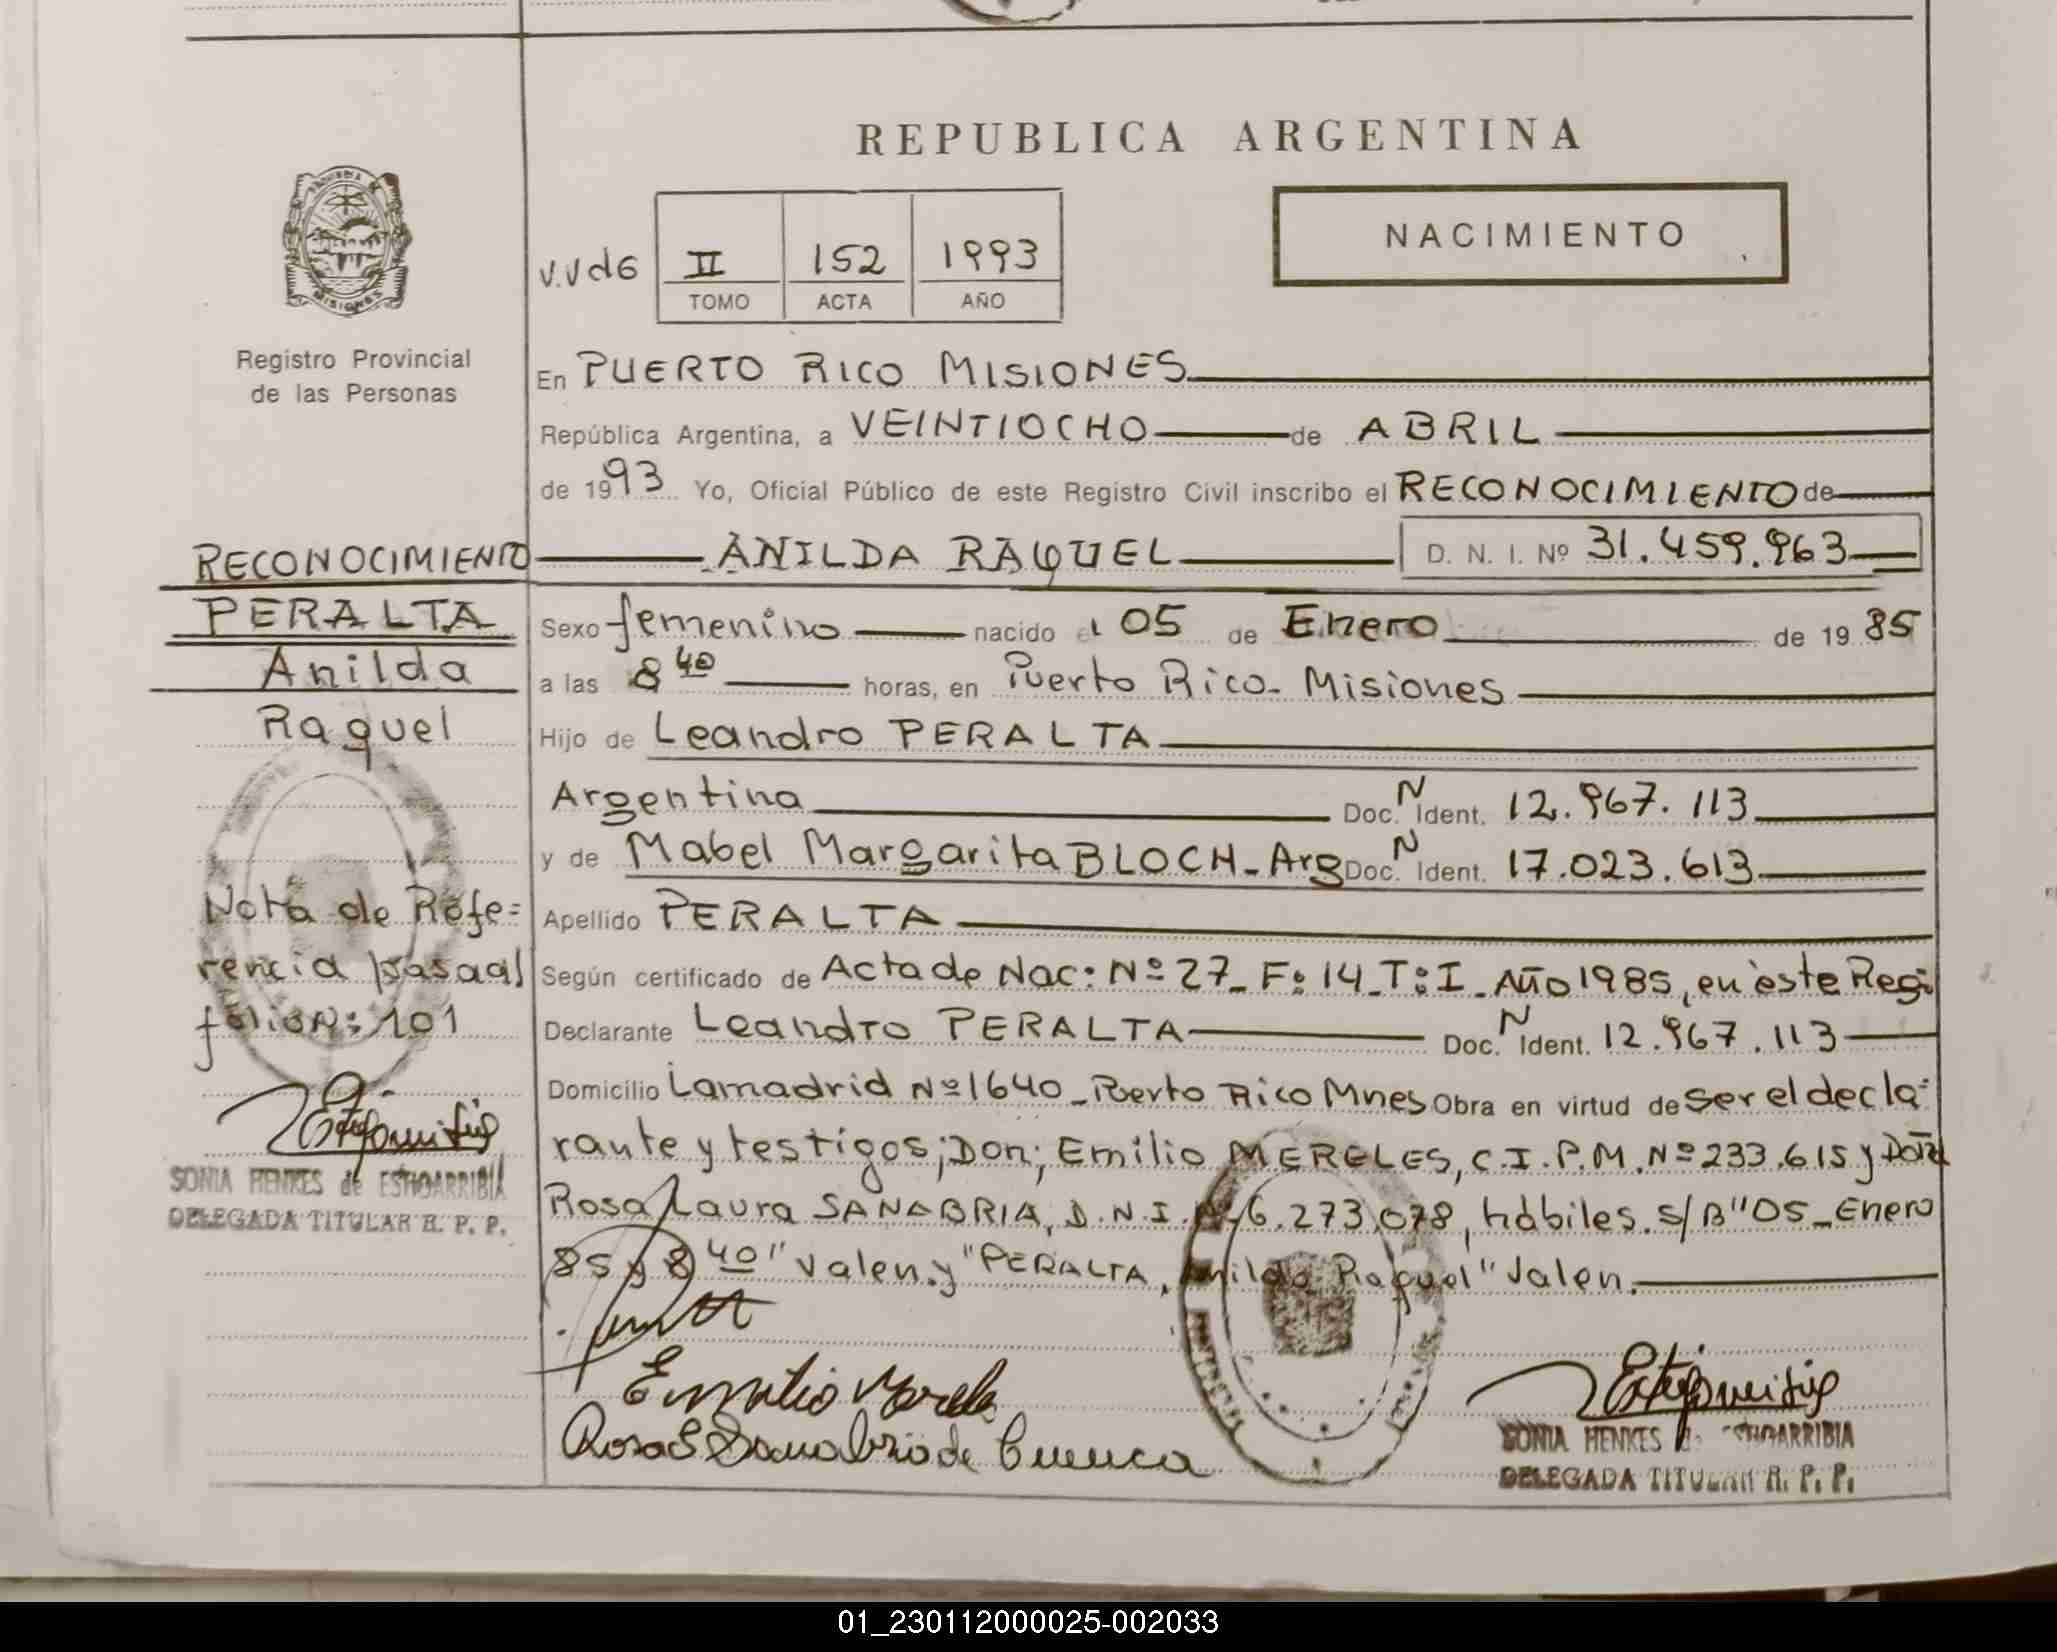 REPUBLICA ARGENTINA
NACIMIENTO
V.V d6
II 152 1993
TOMO ACTA AÑO
MISIONES
Registro Provincial
de las Personas
En PUERTO RICO MISIONES
República Argentina, a VEINTIOCHO de ABRIL
de 1993 Yo, Oficial Público de este Registro Civil inscribo el RECONOCIMIENTO de
ANILDA RAQUEL D. N. I. Nº 31.459.963
RECONOCIMIENTO
PERALTA
Anilda
Raquel
Sexo femenino nacido el 05 de Enero de 1985
a las 8 40 horas, en Puerto Rico - Misiones
Hijo de Leandro PERALTA
Argentina Doc. N Ident. 12.967.113
y de Mabel Margarita BLOCH - Arg Doc. N Ident. 17.023.613
Apellido PERALTA
Según certificado de Acta de Nac: Nº 27 - F: 14 - T: I - Año 1985, en este Regi
Declarante Leandro PERALTA Doc. N Ident. 12.967.113
Domicilio Lamadrid Nº 1640 - Puerto Rico Mnes Obra en virtud de ser el decla=
rante y testigos; Don; Emilio MERELES, C.I.P.M. Nº 233.615 y Doña
Rosa Laura SANABRIA, D.N.I. Nº 6.273.078, hábiles. s/B "05 - Enero
85 y 8 40" Valen. y "PERALTA, Anilda Raquel" Valen.
Nota de Refe=
rencia pasa al
folio Nº: 101
SONIA HENKES de ESTIGARRIBIA
DELEGADA TITULAR R. P. P.
Emilio Merele
Rosa L Sanabria de Cuenca
SONIA HENKES de ESTIGARRIBIA
DELEGADA TITULAR R. P. P.
01_230112000025-002033